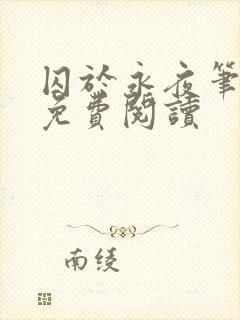 囚於永夜筆
免費閱讀
南绫